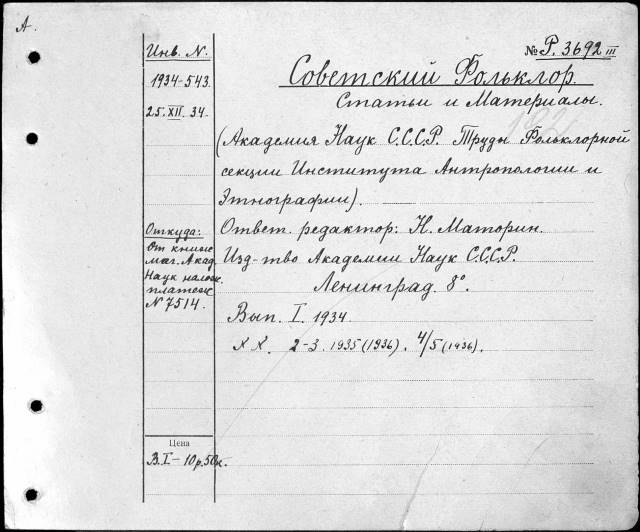 А.
Инв. N.
1934-543.
25.XII.34.
№ Р. 3692 III
Советский Фольклор.
Статьи и Материалы.
(Академия Наук С.С.С.Р. Труды Фольклорной
секции Института Антропологии и
Этнографии).
Ответ. редактор: Н. Маторин.
Изд-тво Академии Наук С.С.С.Р.
Ленинград. 8°.
Вып. I. 1934.
2-3. 1935 (1936). 4/5 (1936).
Откуда:
От книжн.
маг. Акад.
Наук налож.
платеж
N 7514.
Цена
В.I – 10р.50к.